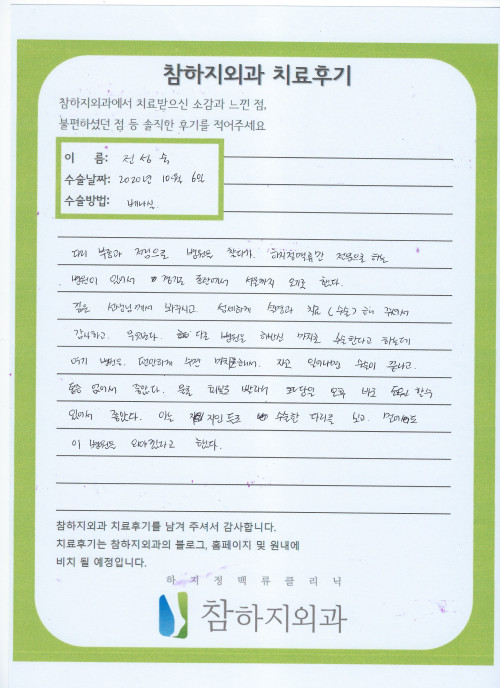 참하지외과 치료후기
참하지외과에서 치료받으신 소감과 느낀 점,
불편하셨던 점 등 솔직한 후기를 적어주세요
이 름: 전 성 숙
수술날짜: 2020년 10월 6일
수술방법: 베나실
다리 부종과 저림으로 병원을 찾다가. 하지정맥류만 전문으로 하는
병원이 있어서 경기도 에서 서울까지 오게 했다.
젊은 선생님께서 봐주시고. 섬세하게 설명과 치료 (수술) 해 주셔서
감사하고. 다른 병원은 하반신 마취로 수술한다고 하는데
여기 병원은. 편안하게 수면 마취해서. 자고 일어나면 수술이 끝나고.
통증 없어서 좋았다. 당일 오후 바로 할수
있어서 좋았다. 아는 지인들도 수술한 다리를 보고.
이 병원은 했다.
참하지외과 치료후기를 남겨 주셔서 감사합니다.
치료후기는 참하지외과의 블로그, 홈페이지 및 원내에
비치 될 예정입니다.
하지정맥류클리닉
참하지외과